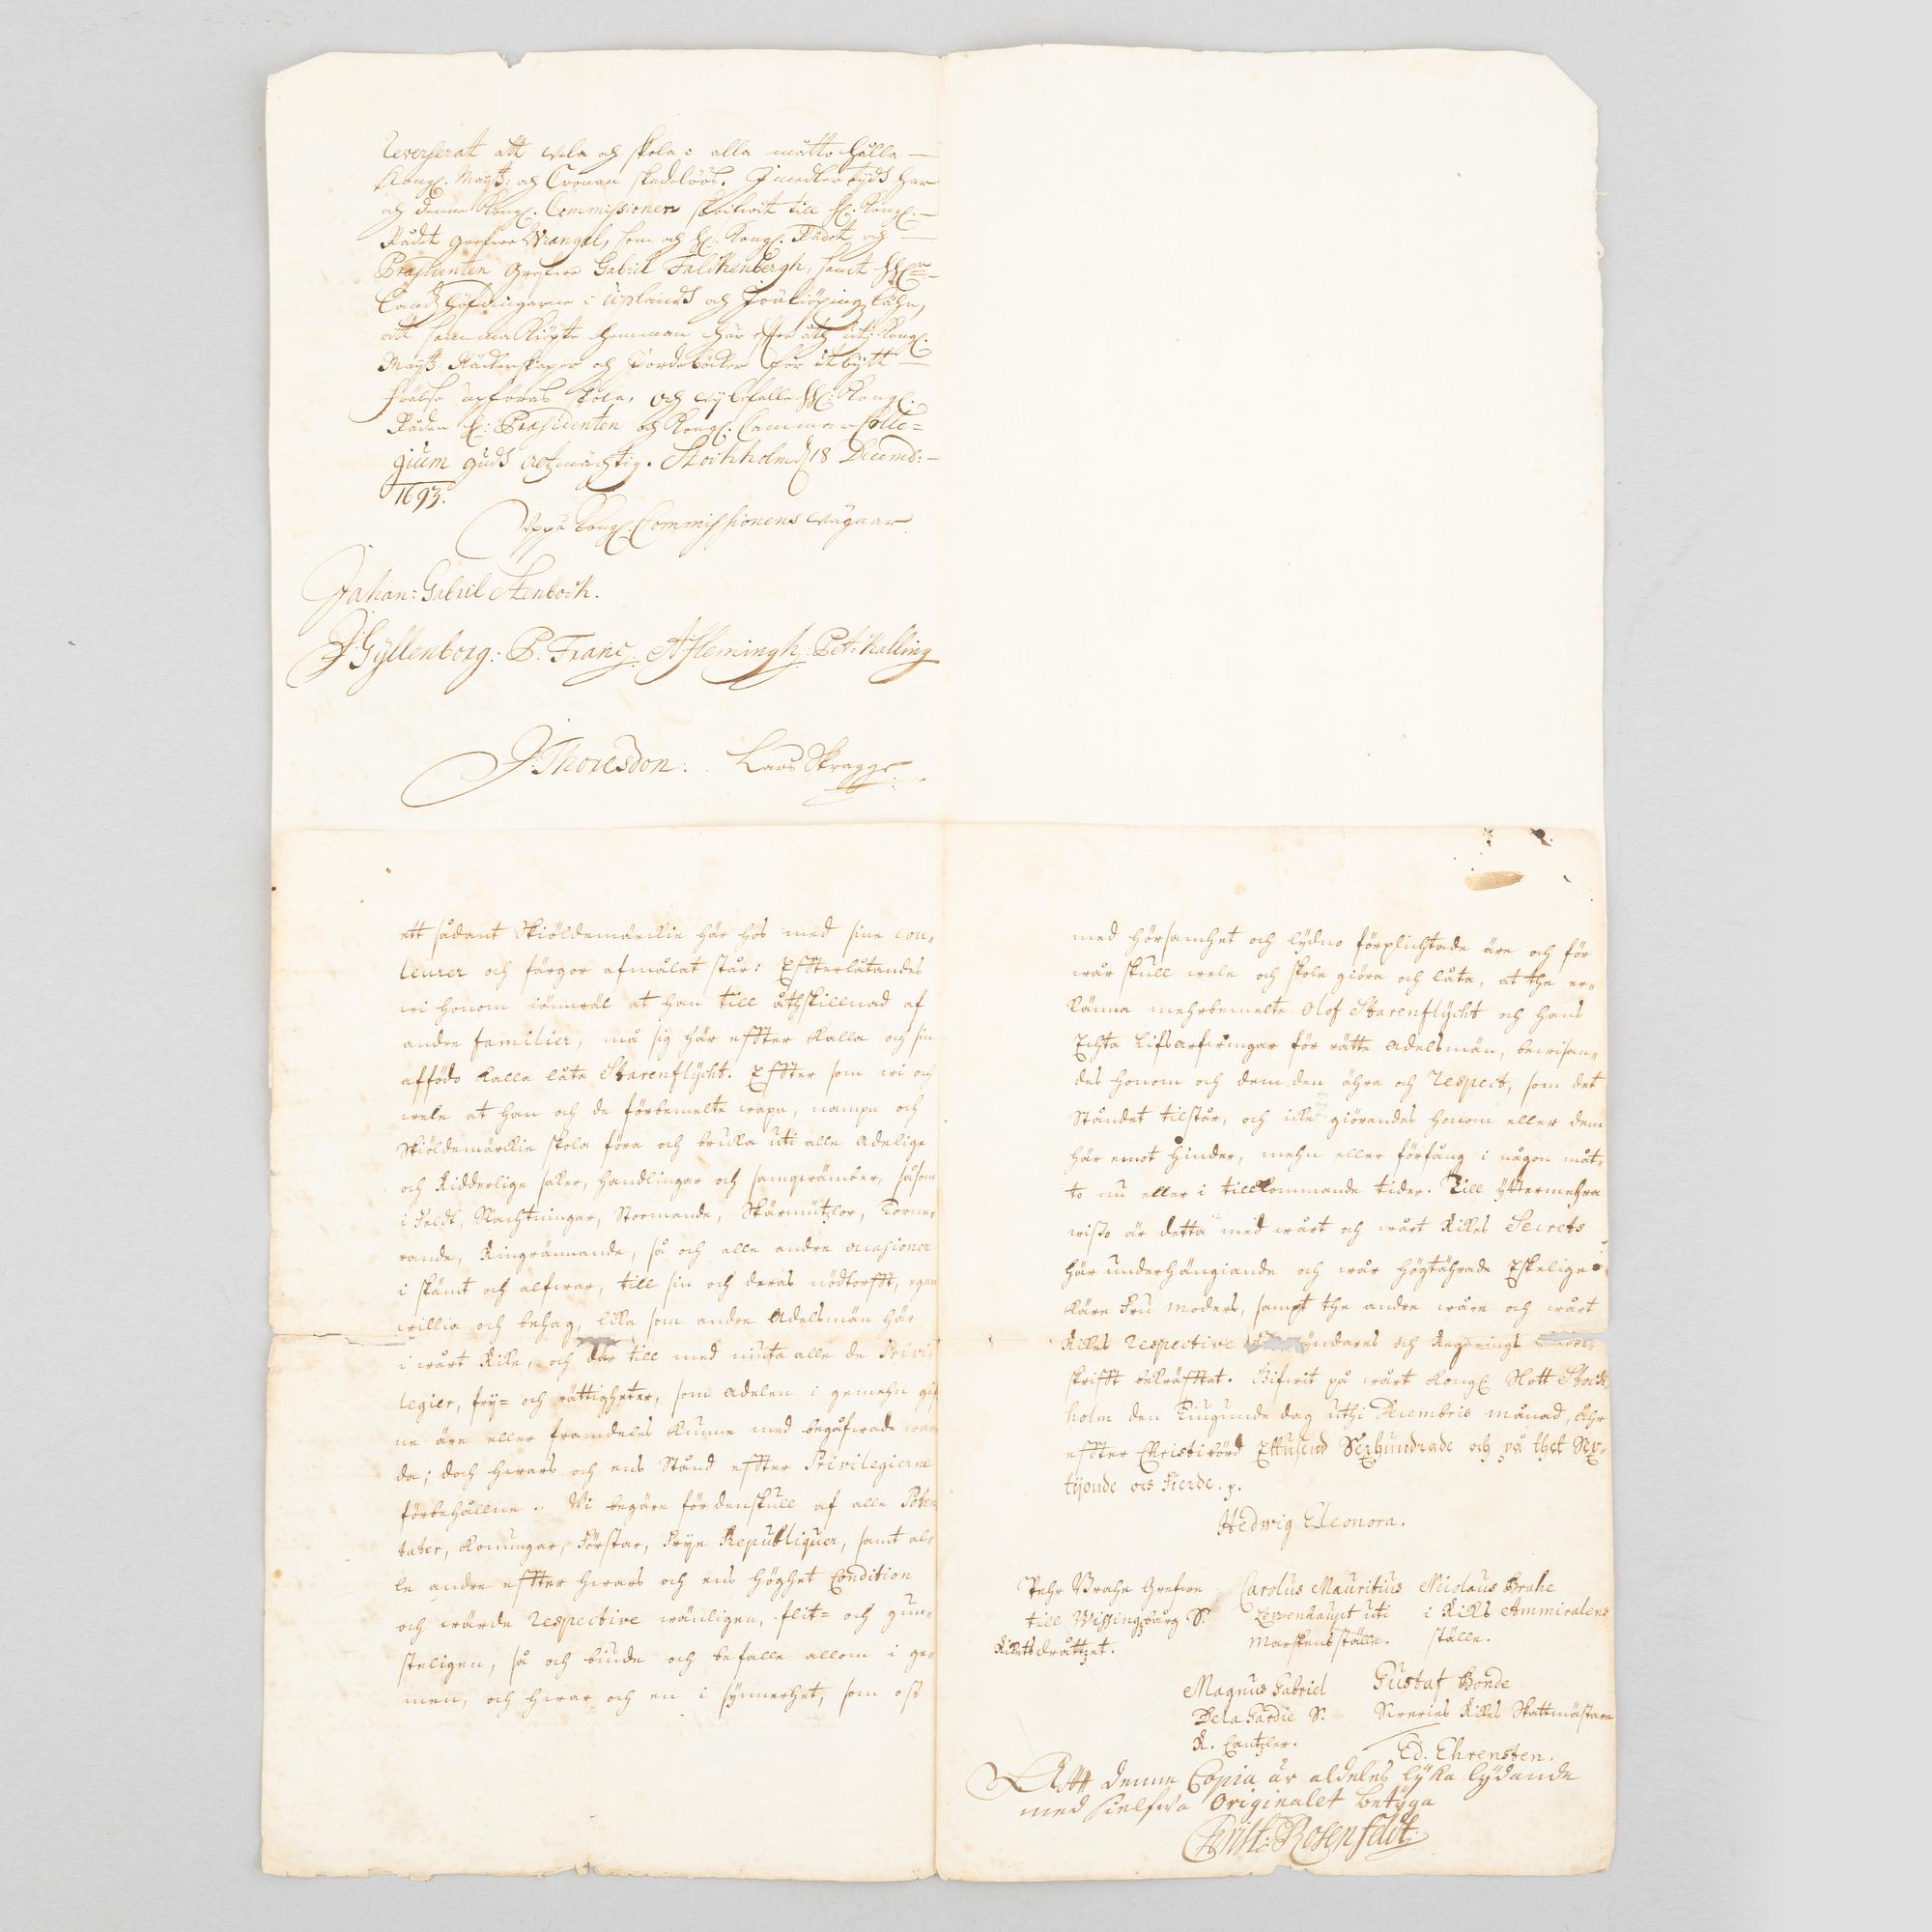 reverserat att vela och skola i alla måtto hålla
Kongl. Mayttz: och Cronan skadelööss. Imedler tijdh har
och denne Kongl. Commissionen skrifwit till H: Kongl.
Rådet Grefwe Wrangel, som och H: Kongl. Rådet och
Præsidenten Grefwe Gabriel Falckenbergh, samt HH:
Landzhöfdingarne i Uplandz och Jönkiöpingz Lähn,
att samma Kiöpte hemman här effter uthi Kongl.
Mayttz Räkenskaper och Jordeböcker för utbytt
frälse opföras skola, och wij befalle HH: Kongl.
Råden H: Præsidenten och Kongl. Cammer Colle=
gium Gudh Stockholm d 18 Decemb:
1693.
Uppå Kongl. Commissionens wägnar
Johan: Gabriel Stenbock.
J: Gyllenborg: P: Franc: A Flemingh: Pet: Kalling
J: Thoresdon. Lars Skragge
ett sådant Skiöldemärckie här hos med sine cou„
leurer och färgor afmålat står: Effterlåtandes
wi honom iämwäl at han till åthskillnad af
andre familier, må sig här effter kalla och sin
afföde kalla låta Starenflycht. Effter som wi och
wele at han och de förbemelte wapn, nampn och
Skiöldemärckie skola föra och bruka uti alle adelige
och Ridderlige saker, handlingar och samqwämber, såsom
i Feldt, Slachtningar, Stormande, Skärmützlor, Torne„
rande, Ringrännande, så och alle andre occasioner
i skämt och alfwar, till sin och deras nödtorfft, egen
willia och behag, lika som andre Adelsmän här
i wårt Rike, och där till med niuta alle de Privi„
legier, fry= och rättigheter, som adelen i gemehn gif
ne äre eller framdeles kunne med begåfwade war
da; doch hwars och ens Stånd effter Privilegierne
förbehållne. Wi begäre fördenskull af alle Poten
tater, Konungar, Förstar, Frye Republiquer, samt al„
le andre effter hwars och ens Höghet Condition
och wärde respective wänligen, flit= och gun„
steligen, så och biude och befalle allom i ge„
men, och hwar och en i synnerhet, som oss
med hörsamhet och lydno förplichtade äre och för
wår skull wele och skole giöra och låta, at the er„
känna mehrbemelte Olof Starenflycht och hans
Echta Lifsarfwingar för rätte adelsmän, bewisan„
des honom och dem den ähra och respect, som det
Ståndet tilstår, och icke giörandes honom eller dem
här emot hinder, mehn eller förfång i någon måt„
to nu eller i tillkommande tider. Till yttermehra
wisso är detta med wårt och wårt Rikes Secrets
här underhängiande och wår Högtährade Elskelige
Käre Fru Moders, sampt the andre wåre och wårt
Rikes respective yndares och Regerings
skrifft bekräfftat. Gifwit på wårt Kongl. Slott Stock
holm den Tiugunde dag uthi Decembris månad, Åhr
effter Christi börd Ettusend Sexhundrade och på thet Sex„
tijonde och Fierde. p.
Hedwig Eleonora.
Pehr Brahe Grefwe
till Wissingzborg S.
Rikets dråttzet.
Carolus Mauritius
Lewenhaupt uti
Marskens ställe.
Nicolaus Brahe
i Rikes Ammiralens
ställe.
Magnus Gabriel
De la Gardie S.
R. Cantzler.
Gustaf Bonde
Sweries Rikes Skattmästare
Ed. Ehrensten.
Att denne Copia är aldeles lijka lijdande
med sielfwa Originalet betyga
Christ: Rosenfeldt.